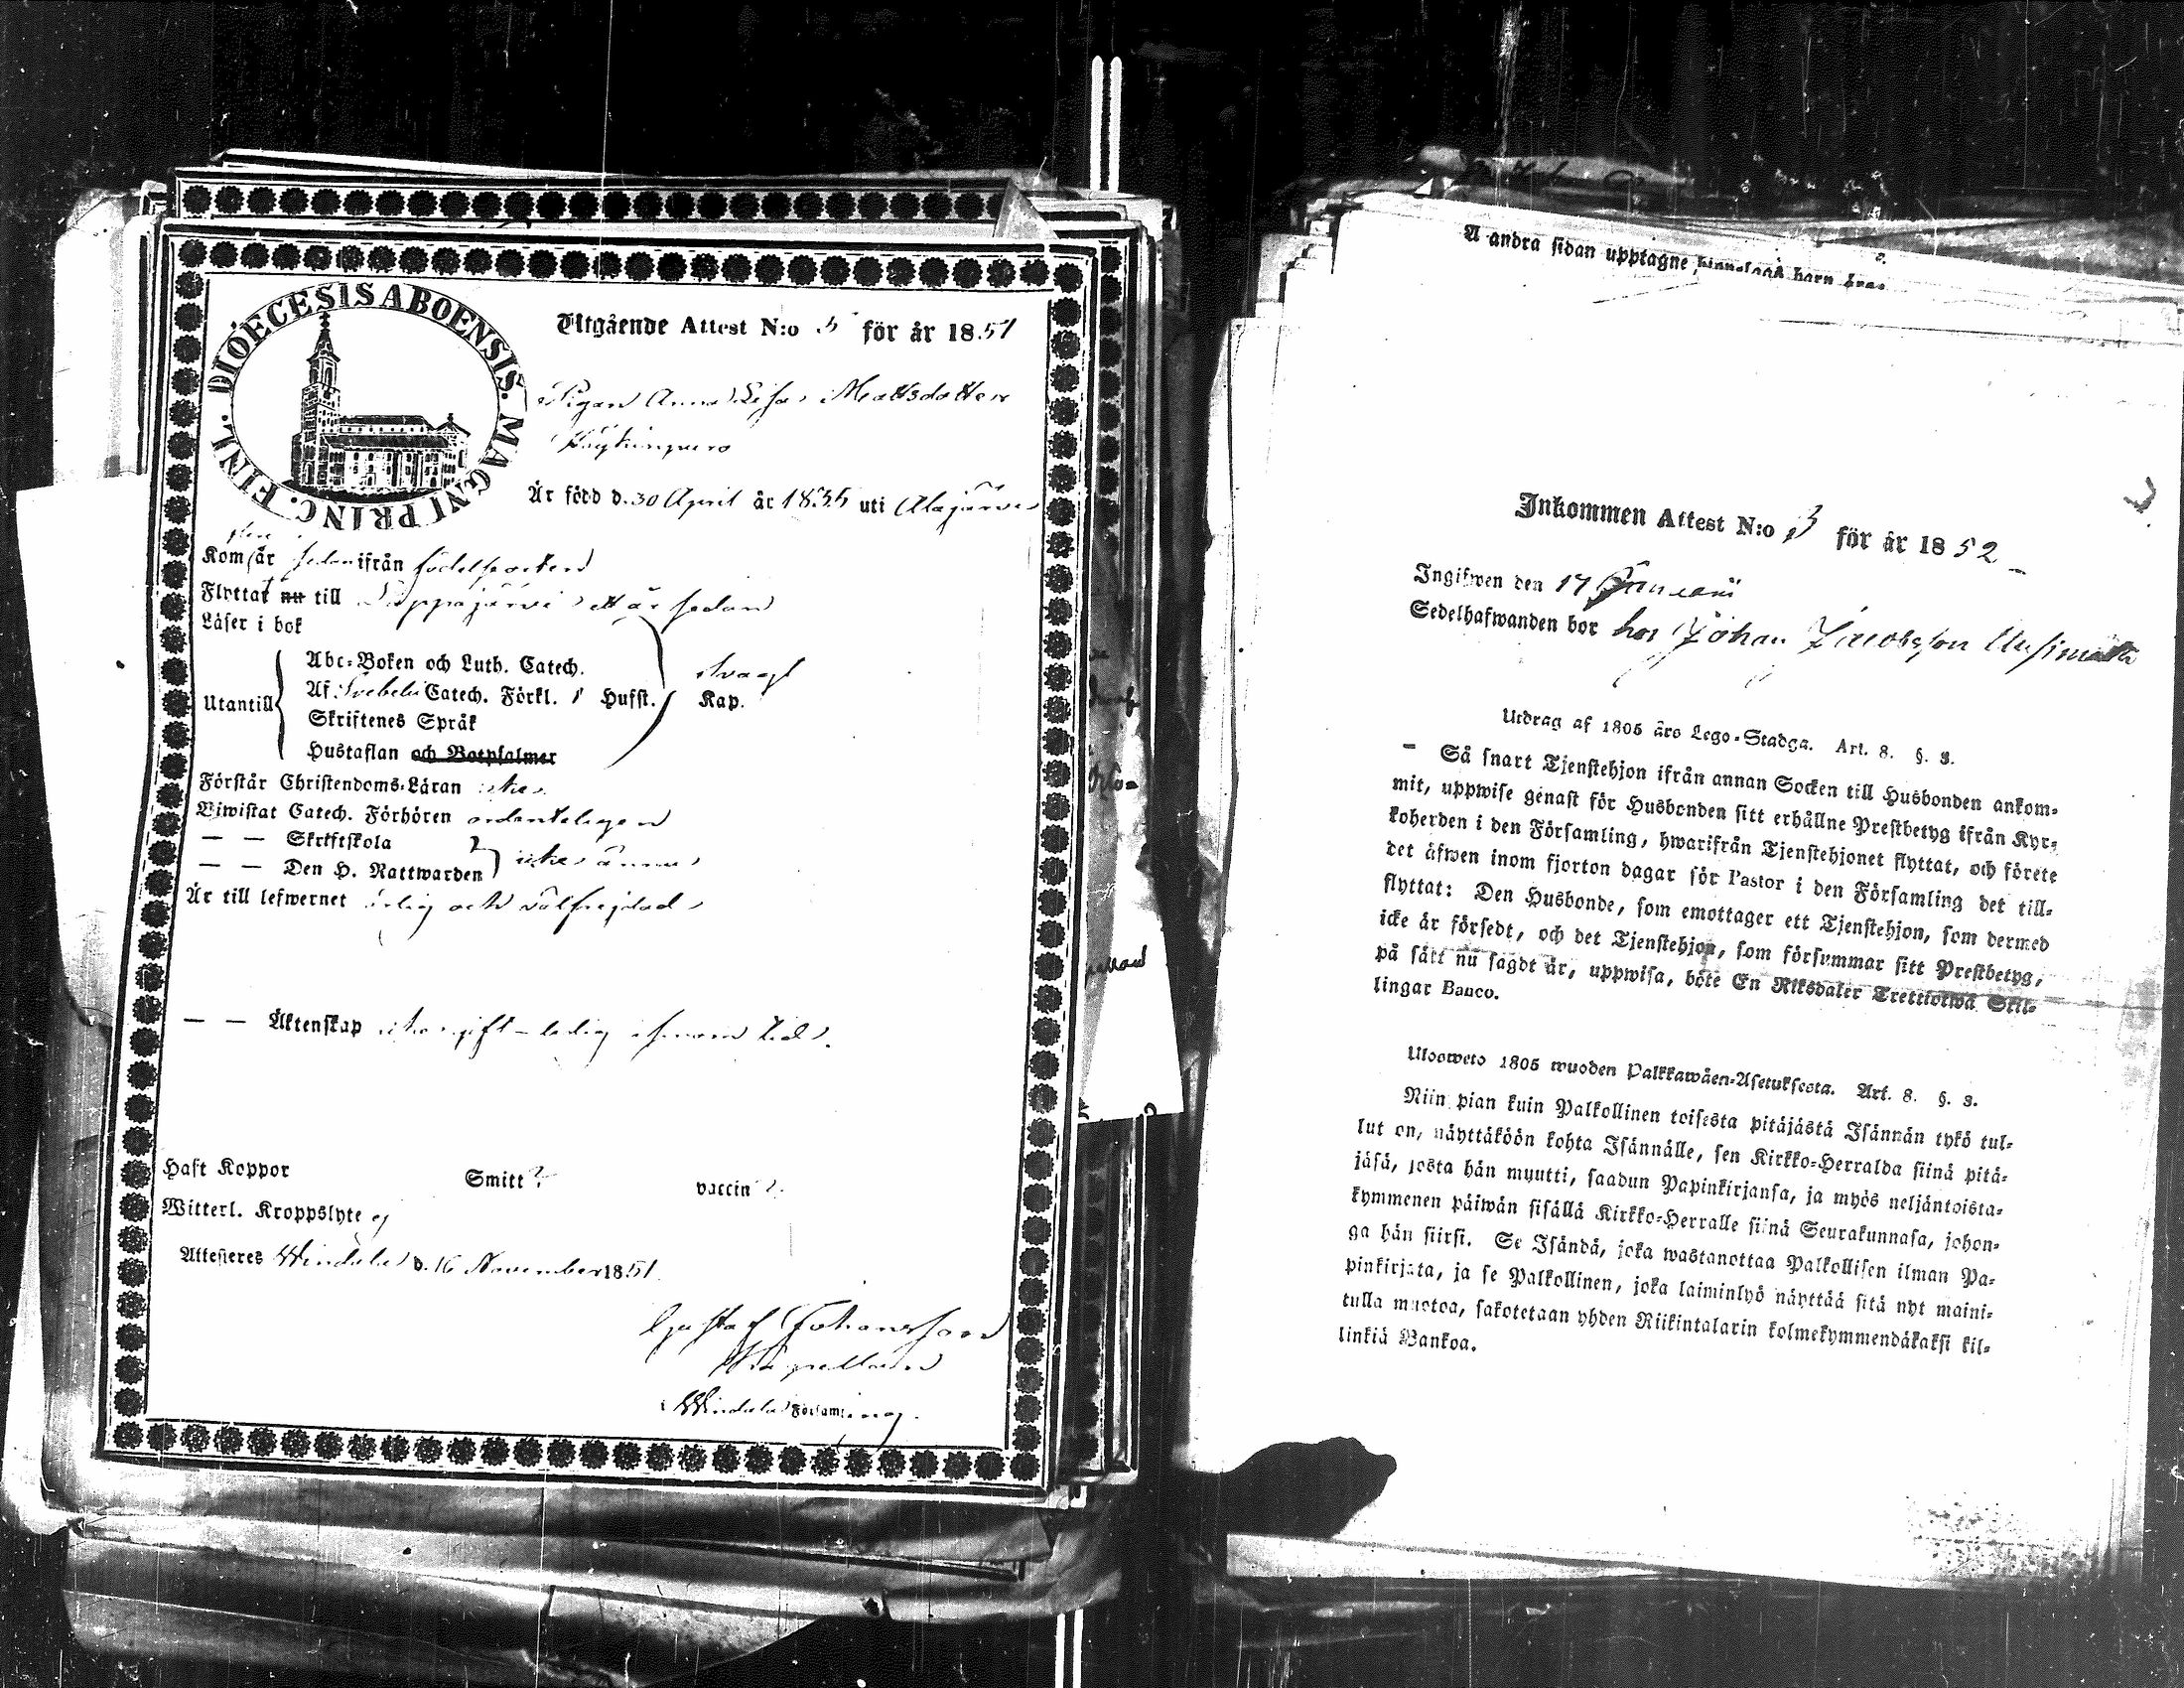 DIOECESIS ABOENSIS. MAGNI PRINC. FINL.
Utgående Attest N:o 5 för år 1851
Pigan Anna Lisa Mattsdotter
Är född d. 30 April år 1835 uti Alajärvi
flere
Kom för år sedan ifrån födelseorten
Flyttat nu till Lappajärvi ett år sedan
Läser i bok
Utantill
Abc-Boken och Luth. Catech. svagt
Af Svebelii Catech. Förkl. 1 Hufst. Kap.
Skriftenes Språk
Hustaflan och Botpsalmer
Förstår Christendoms-Läran icke
Biwistat Catech. Förhören ordenteligen
— — Skriftskola
— — Den H. Nattwarden icke ännu
Är till lefwernet ärlig och välfrejdad
— — Äktenskap icke gift - ledig i sinom tid.
Haft Koppor Smitt? vaccin?
Witterl. Kroppslyte ej
Attesteres Windala d. 16 November 1851.
Gustaf Johansson
Kapellan
Windala Församling.
A andra sidan upptagne barn
Inkommen Attest N:o 3 för år 1852
Ingifwen den 17 Januarii
Sedelhafwanden bor hos Johan Jacobsson
Utdrag af 1805 års Lego-Stadga. Art. 8. §. 3.
— Så snart Tjenstehjon ifrån annan Socken till Husbonden ankom-
mit, uppwise genast för Husbonden sitt erhållne Prestbetyg ifrån Kyr-
koherden i den Församling, hwarifrån Tjenstehjonet flyttat, och förete
det äfwen inom fjorton dagar för Pastor i den Församling det till-
flyttat: Den Husbonde, som emottager ett Tjenstehjon, som dermed
icke är försedt, och det Tjenstehjon, som försummar sitt Prestbetyg,
på sätt nu sagdt är, uppwisa, böte En Riksdaler Trettiotwå Skil-
lingar Banco.
Ulosweto 1805 wuoden Palkkawäen-Asetuksesta. Art. 8. §. 3.
Niin pian kuin Palkollinen toisesta pitäjästä Isännän tykö tul-
lut on, näyttäköön kohta Isännälle, sen Kirkko-Herralda siinä pitä-
jäsä, josta hän muutti, saadun Papinkirjansa, ja myös neljäntoista-
kymmenen päiwän sisällä Kirkko-Herralle siinä Seurakunnasa, johon-
ga hän siirsi. Se Isändä, joka wastanottaa Palkollisen ilman Pa-
pinkirjata, ja se Palkollinen, joka laiminlyö näyttää sitä nyt maini-
tulla muotoa, sakotetaan yhden Riikintalarin kolmekymmendäkaksi kil-
linkiä Bankoa.